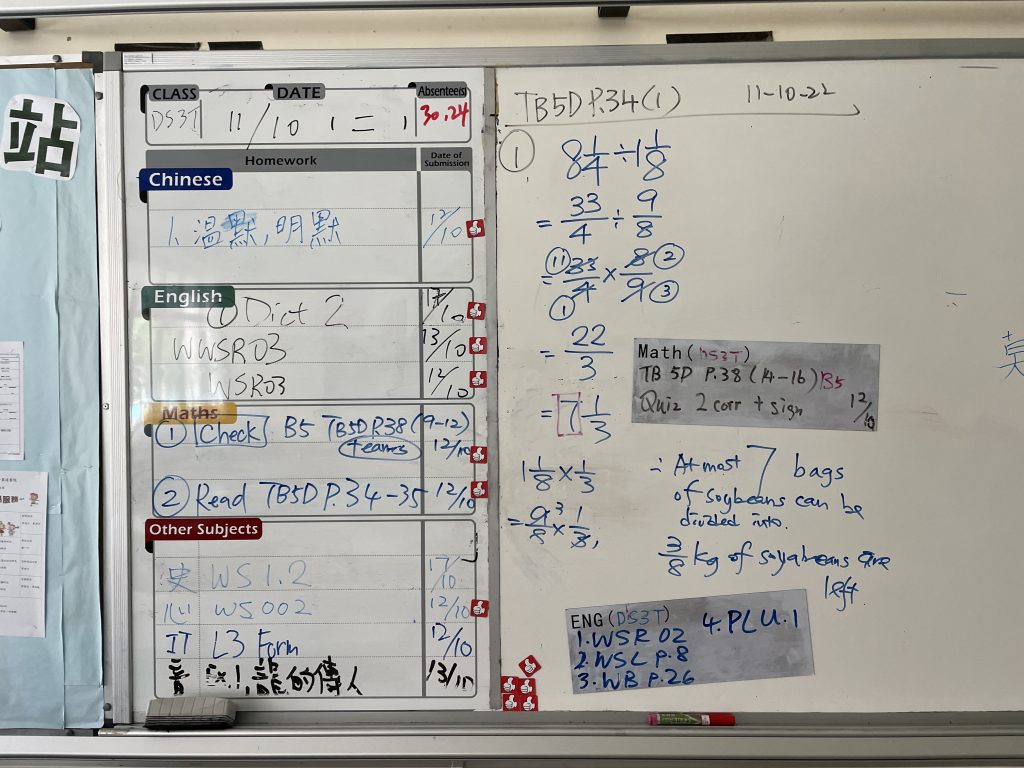 站
CLASS DATE Absentee(s)
DS3T 11/10 (二) 30,24
Homework Date of Submission
Chinese
1. 溫默,明默 12/10
English
① Dict 2 17/10
WWSR03 13/10
WSR03 12/10
Maths
① Check B5 TB5D P.38 (9-12) 12/10
teams
② Read TB5D P.34-35 12/10
Other Subjects
史 WS 1.2 17/10
心 WS002 12/10
IT L3 Form 12/10
的偉人 13/10
TB5D P.34(1) 11-10-22
① 8 1/4 ÷ 1 1/8
= 33/4 ÷ 9/8
= ⑪ 33/4 × 8/9 ② ① ③
= 22/3
= 7 1/3
1 1/8 × 1/3
= 9/8 × 1/3
3
∴ At most 7 bags
of soybeans can be
divided into.
3/8 kg of soyabeans are
left.
Math (DS3T)
TB 5D P.38 (14-16) B5
Quiz 2 corr + sign 12/10
ENG (DS3T) 4. PLU.1
1. WSR 02
2. WSL P.8
3. WB P.26